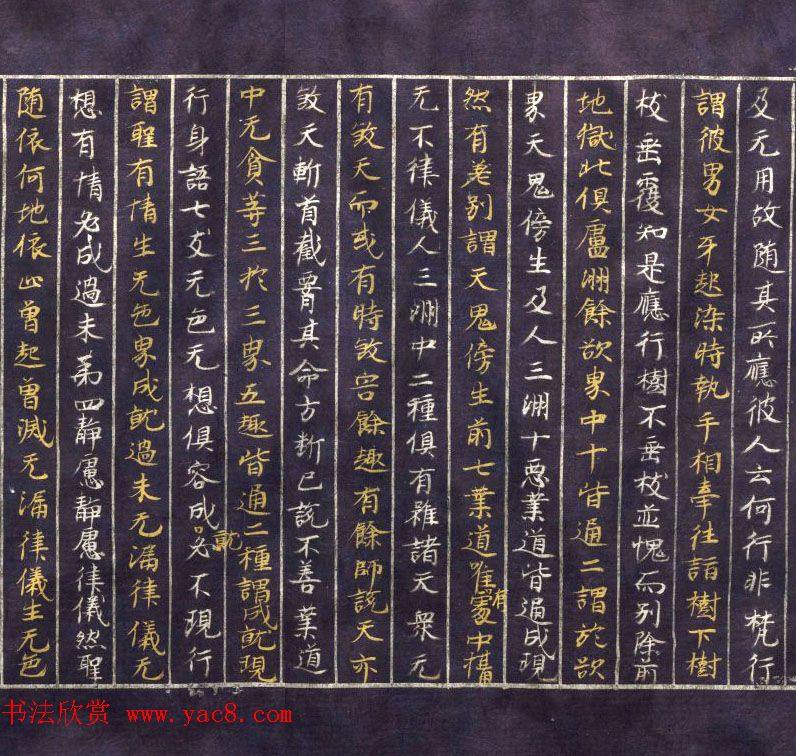 及无用故随其所應彼人云何行非梵行
謂彼男女牙起染時執手相牽往詣樹下樹
枝垂覆知是應行樹不垂枝並愧而別除前
地獄北俱盧洲餘欲界中十皆通二謂於欲
界天鬼傍生及人三洲十惡業道皆通成現
然有差別謂天鬼傍生前七業道唯有處中攝
无不律儀人三洲中二種俱有雖諸天眾无
有煞天而或有時煞害餘趣有餘師說天亦
煞天斬首截腰其命方断已說不善業道
中无貪等三於三界五趣皆通二種謂成就現
行身語七支无色无想俱容成就必不現行
謂聖有情生无色界成就過未无漏律儀无
想有情必成過未第四靜慮靜慮律儀然聖
随依何地依止曾起曾滅无漏律儀生无色
书法欣赏 www.yac8.com